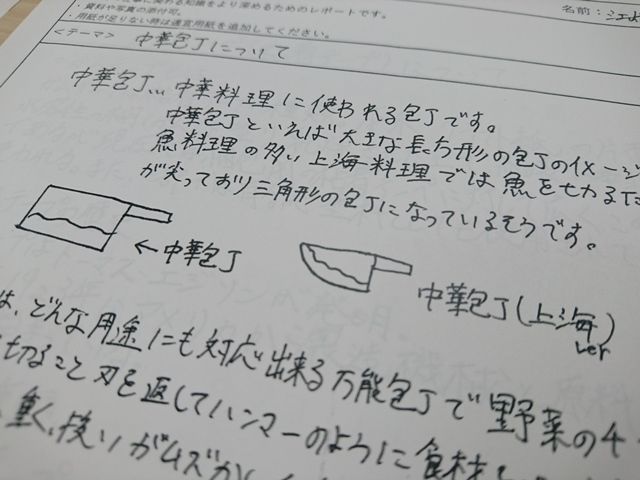 に関わる知識をより深めるためのレポートです。
・資料や写真の添付可。
・用紙が足りない時は適宜用紙を追加してください。
名前：シエよ
＜テーマ＞ 中華包丁について
中華包丁… 中華料理に使われる包丁です。
中華包丁といえば大きな長方形の包丁のイメージ
魚料理の多い上海料理では魚を切るた
が尖っており三角形の包丁になっているそうです。
←中華包丁
中華包丁(上海
ver
は、どんな用途にも対応出来る万能包丁で野菜の4
切ること刃を返してハンマーのように食材を
重く、扱いがムズかし